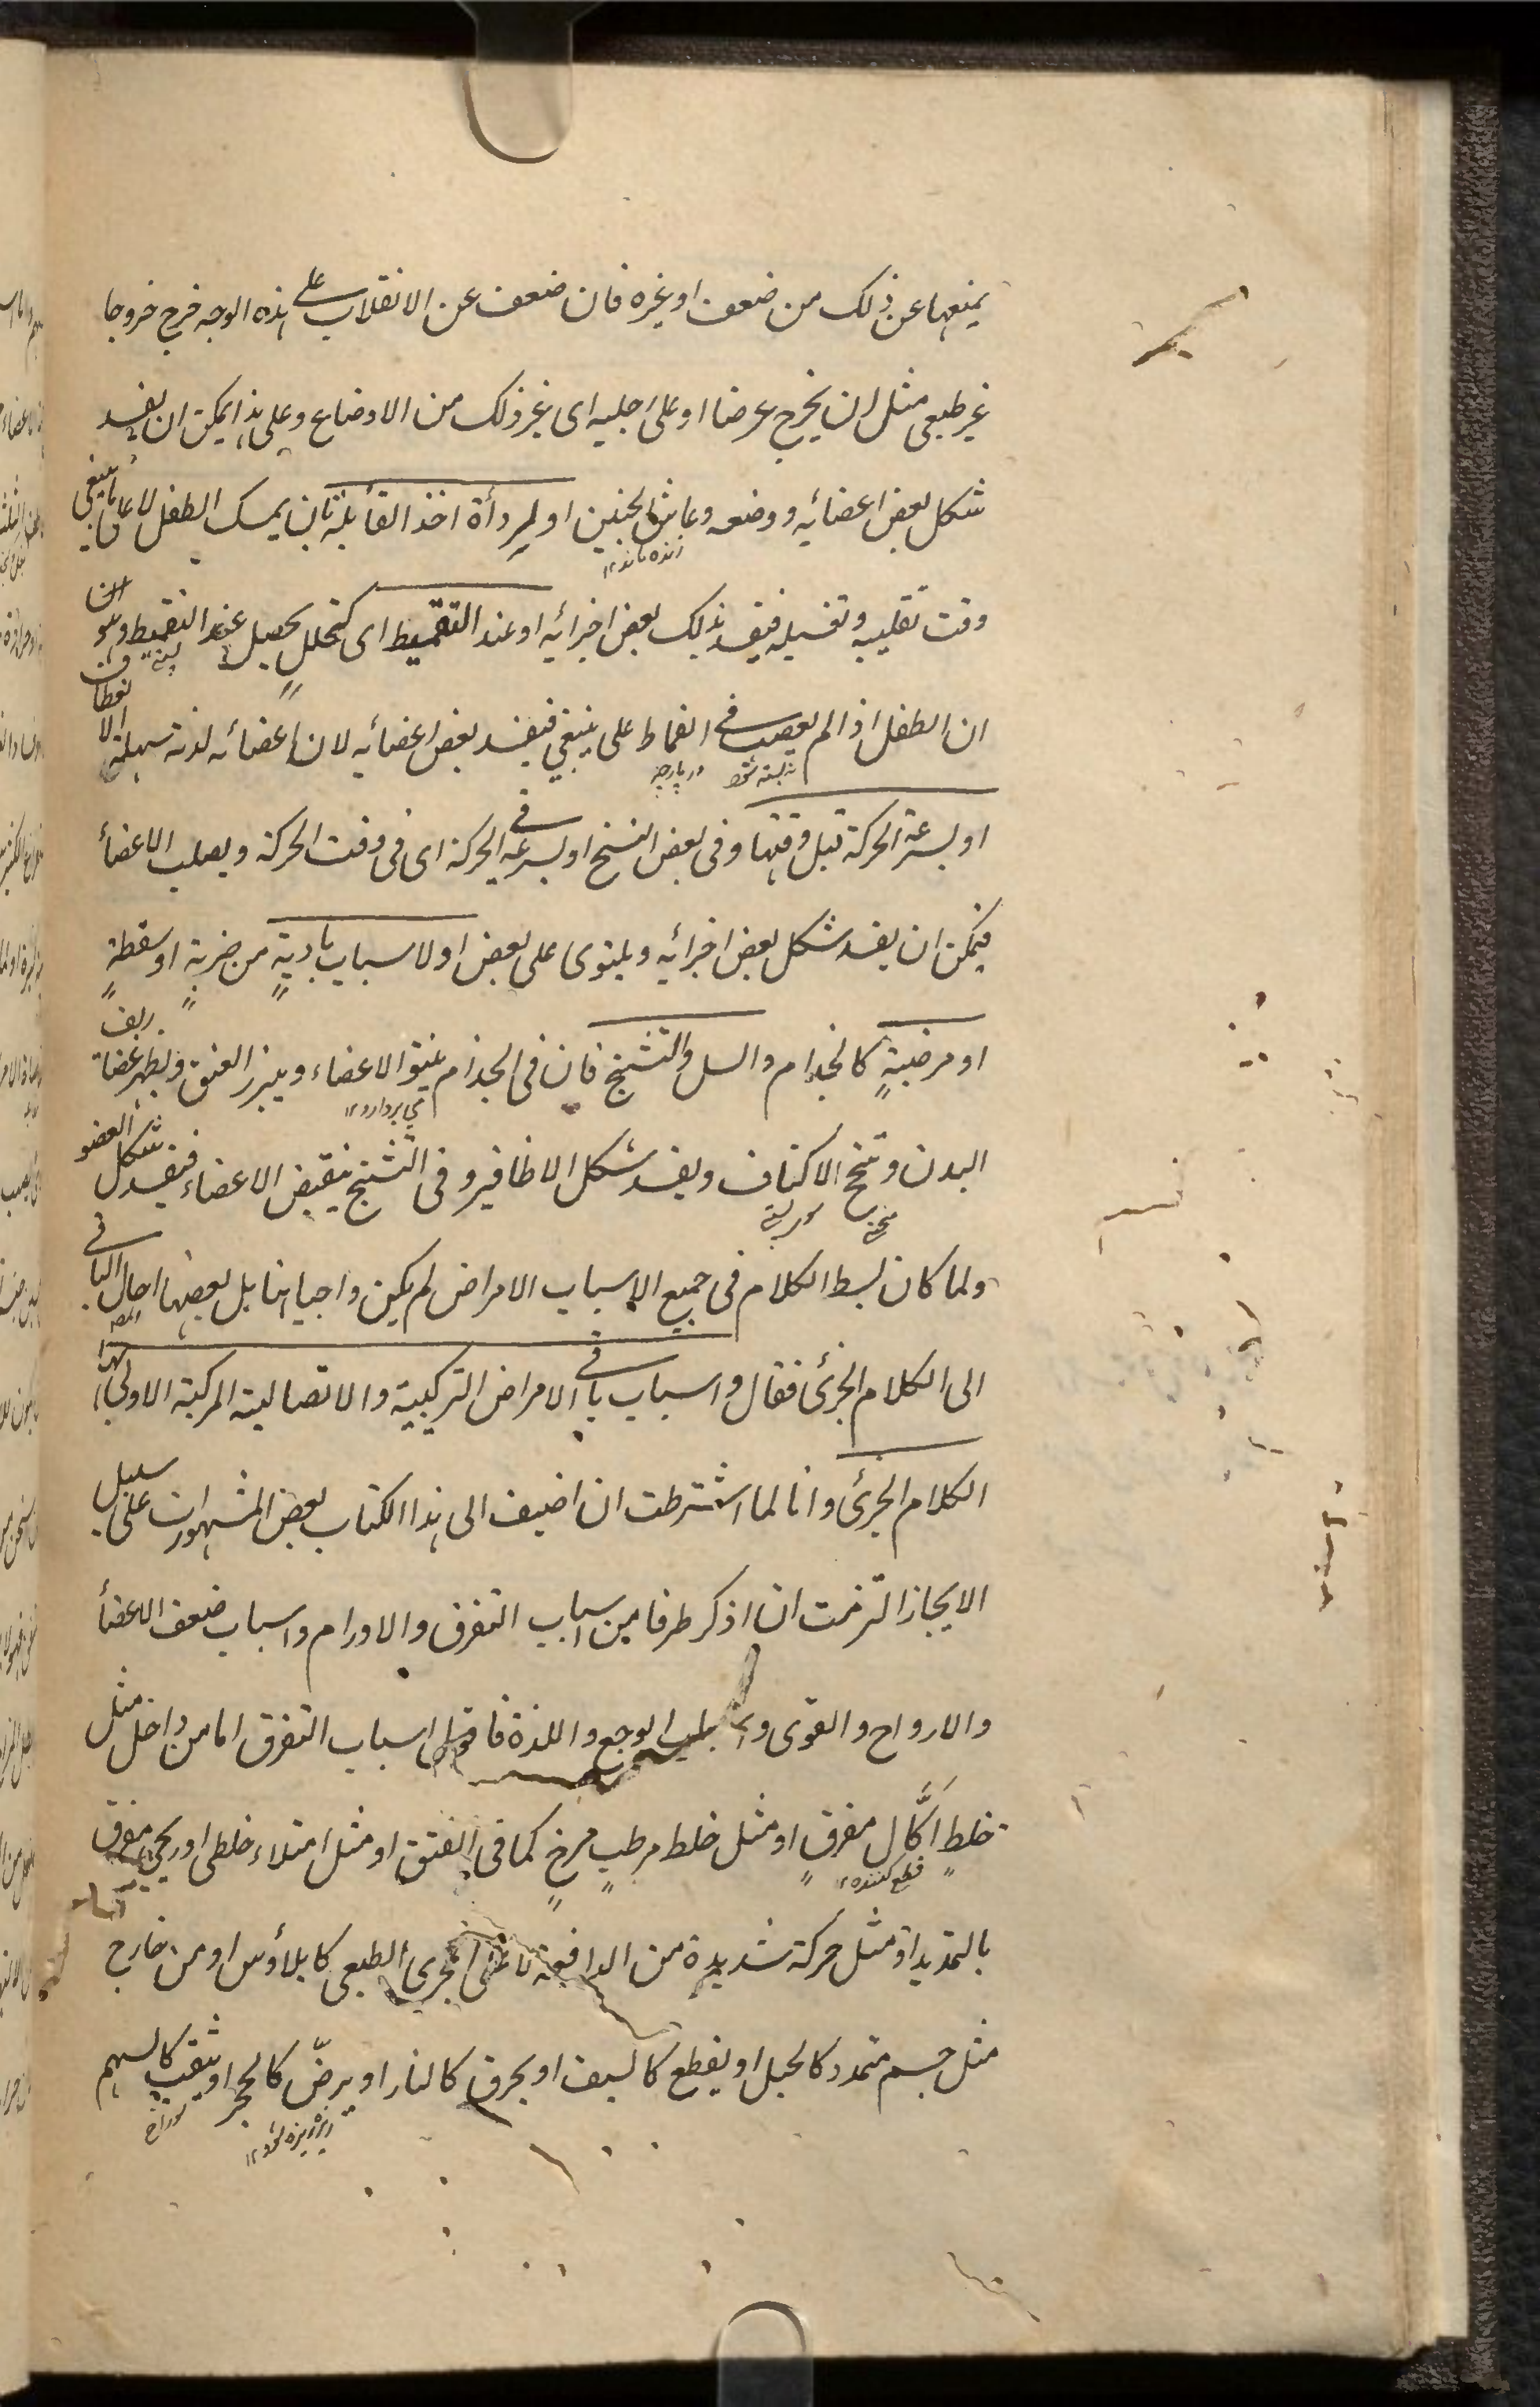 يمنعها عن ذلك من ضعف او غيره فان ضعف عن الانقلاب على هذه الوجه خرج خروجا
غير طبعى مثل ان يخرج عرضا او على رجليه اى غير ذلك من الاوضاع وعلى هذا يمكن ان يفسد
شكل بعض اعضائه ووضعه وعاش الجنين او لرداءة اخذ القابلة بان يمسك الطفل لا على ما ينبغي
زنده ماند ۱۲
وقت تقليبه وتغسيله فيفسد بذلك بعض اجزائه او عند التقميط اى كتخلل يحصل عند التقميط وهو
ان الطفل اذا لم يعصب فى القماط على ينبغي فيفسد بعض اعضائه لان اعضائه لدنة سهلة الانعطاف
بسته شود در پارچه
او لسرعة الحركة قبل وقتها وفى بعض النسخ او لسرعة فى الحركة اى فى وقت الحركة ويصلب الاعضاء
فيمكن ان يفسد شكل بعض اجزائه ويلتوى على بعض او لاسباب بادية من ضربة او سقطة
او مرضية كالجذام والسل والتشنج فان فى الجذام الاعضاء العنق ويظهر
البدن الاكتاف ويفسد شكل الاظافير وفى التشنج ينقبض الاعضاء فيفسد شكل العضو
ولما كان بسط الكلام فى جميع الاسباب الامراض لم يكن واجبا هنا بل بعضها احال الباقى
الى الكلام الجزئى فقال واسباب باقى الامراض التركيبية والاتصالية المركبة الاولى بها
الكلام الجزئى وانا لما اشترطت ان اضيف الى هذا الكتاب بعض المشهورات على سبيل
الايجاز التزمت ان اذكر طرفا من اسباب التفرق والاورام واسباب ضعف الاعضاء
والارواح والقوى واسباب الوجع واللذة فاقول اسباب التفرق اما من داخل مثل
خلط اكّال مفرق او مثل خلط مرطب مرخ كما فى الفتق او مثل امتلاء خلطى او ريحى مفرق
قطع كننده ۱۲
بالتمديد او مثل حركة شديدة من الدافعة لا على المجرى الطبعى كايلاؤس او من خارج
مثل جسم متمدد كالحبل او يقطع كالسيف او يحرق كالنار او يرضّ كالحجر او يثقب كالسهم
ريزه ريزه شود ۱۲ سوراخ